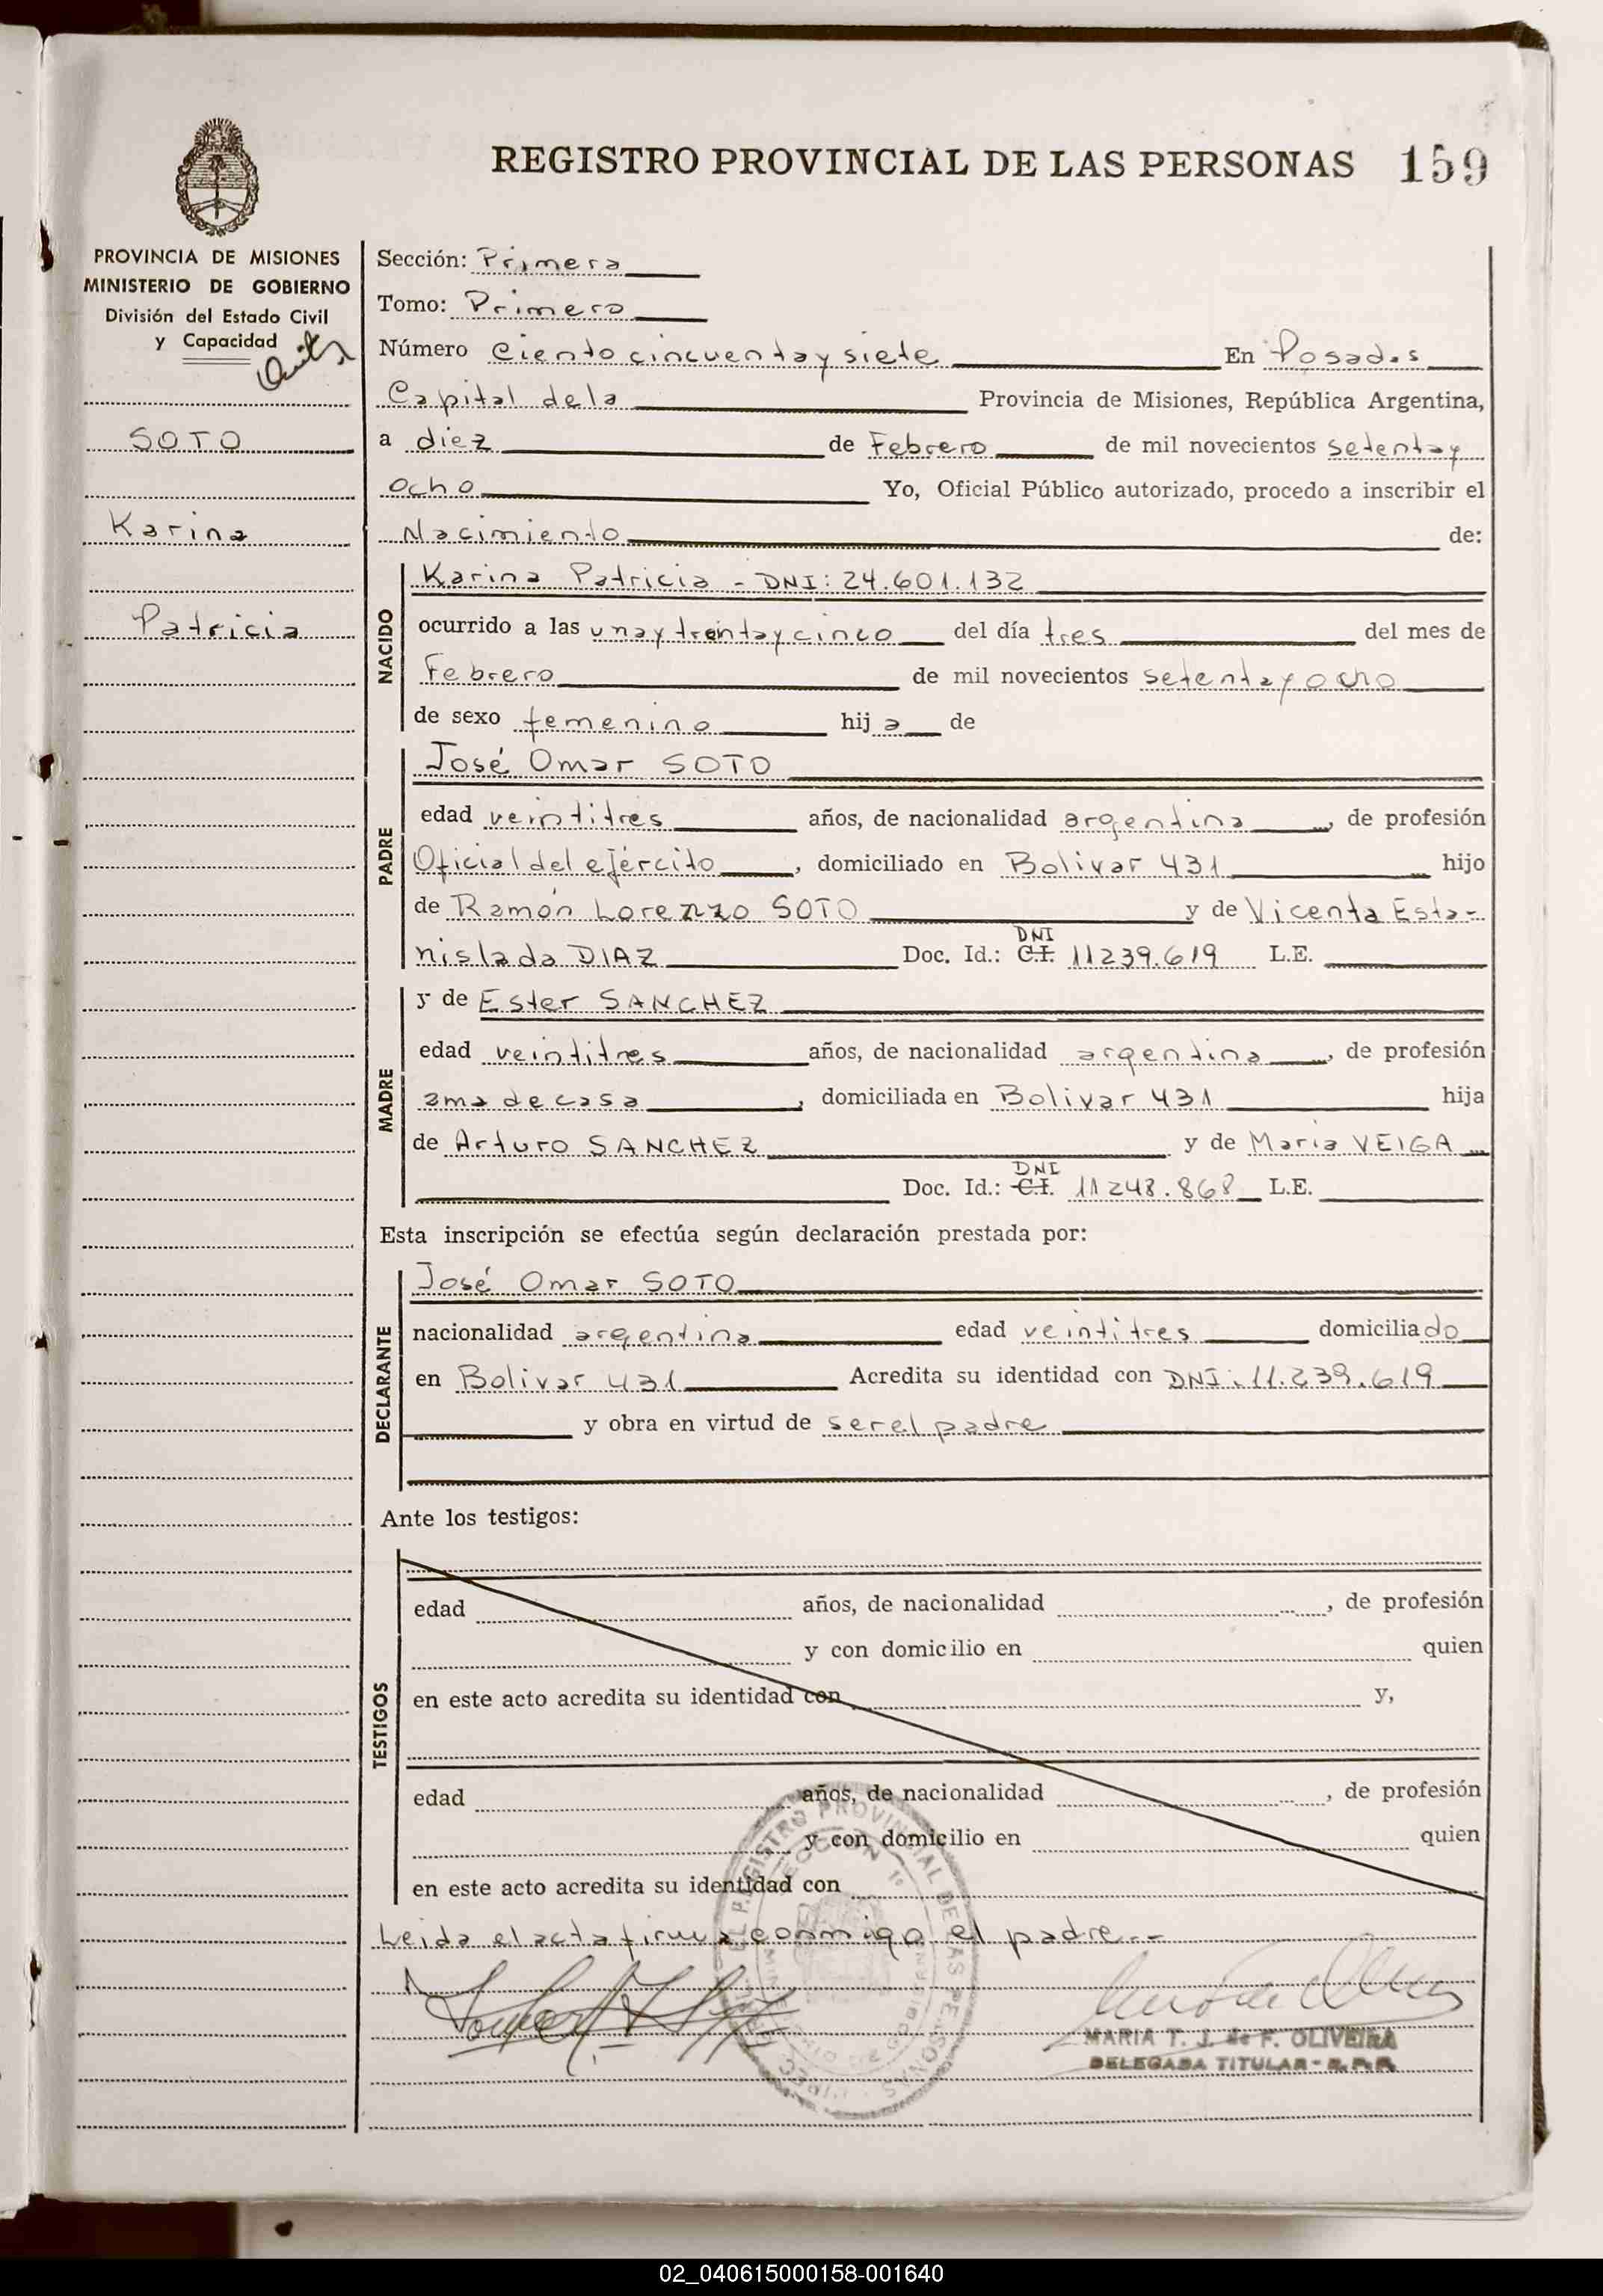 REGISTRO PROVINCIAL DE LAS PERSONAS 159
PROVINCIA DE MISIONES
MINISTERIO DE GOBIERNO
División del Estado Civil
y Capacidad
SOTO
Karina
Patricia
Sección: Primera
Tomo: Primero
Número Ciento cincuenta y siete En Posadas
Capital de la Provincia de Misiones, República Argentina,
a diez de Febrero de mil novecientos setenta y
ocho Yo, Oficial Público autorizado, procedo a inscribir el
Nacimiento de:
NACIDO
Karina Patricia - DNI: 24.601.132
ocurrido a las una y treinta y cinco del día tres del mes de
Febrero de mil novecientos setenta y ocho
de sexo femenino hija de
PADRE
José Omar SOTO
edad veintitres años, de nacionalidad argentina, de profesión
Oficial del ejército, domiciliado en Bolivar 431 hijo
de Ramón Lorenzo SOTO y de Vicenta Esta-
DNI
nislada DIAZ Doc. Id.: C.I. 11239.619 L.E.
MADRE
y de Ester SANCHEZ
edad veintitres años, de nacionalidad argentina, de profesión
ama de casa, domiciliada en Bolivar 431 hija
de Arturo SANCHEZ y de Maria VEIGA
DNI
Doc. Id.: C.I. 11248.868 L.E.
Esta inscripción se efectúa según declaración prestada por:
DECLARANTE
José Omar SOTO
nacionalidad argentina edad veintitres domiciliado
en Bolivar 431 Acredita su identidad con DNI: 11.239.619
y obra en virtud de ser el padre
Ante los testigos:
TESTIGOS
edad años, de nacionalidad , de profesión
y con domicilio en quien
en este acto acredita su identidad con y,
edad años, de nacionalidad , de profesión
y con domicilio en quien
en este acto acredita su identidad con
Leida el acta firma conmigo el padre.--
MARIA T. J. de F. OLIVEIRA
DELEGADA TITULAR - R.P.P.
REGISTRO PROVINCIAL DE LAS PERSONAS
SECCION 1º
02_040615000158-001640